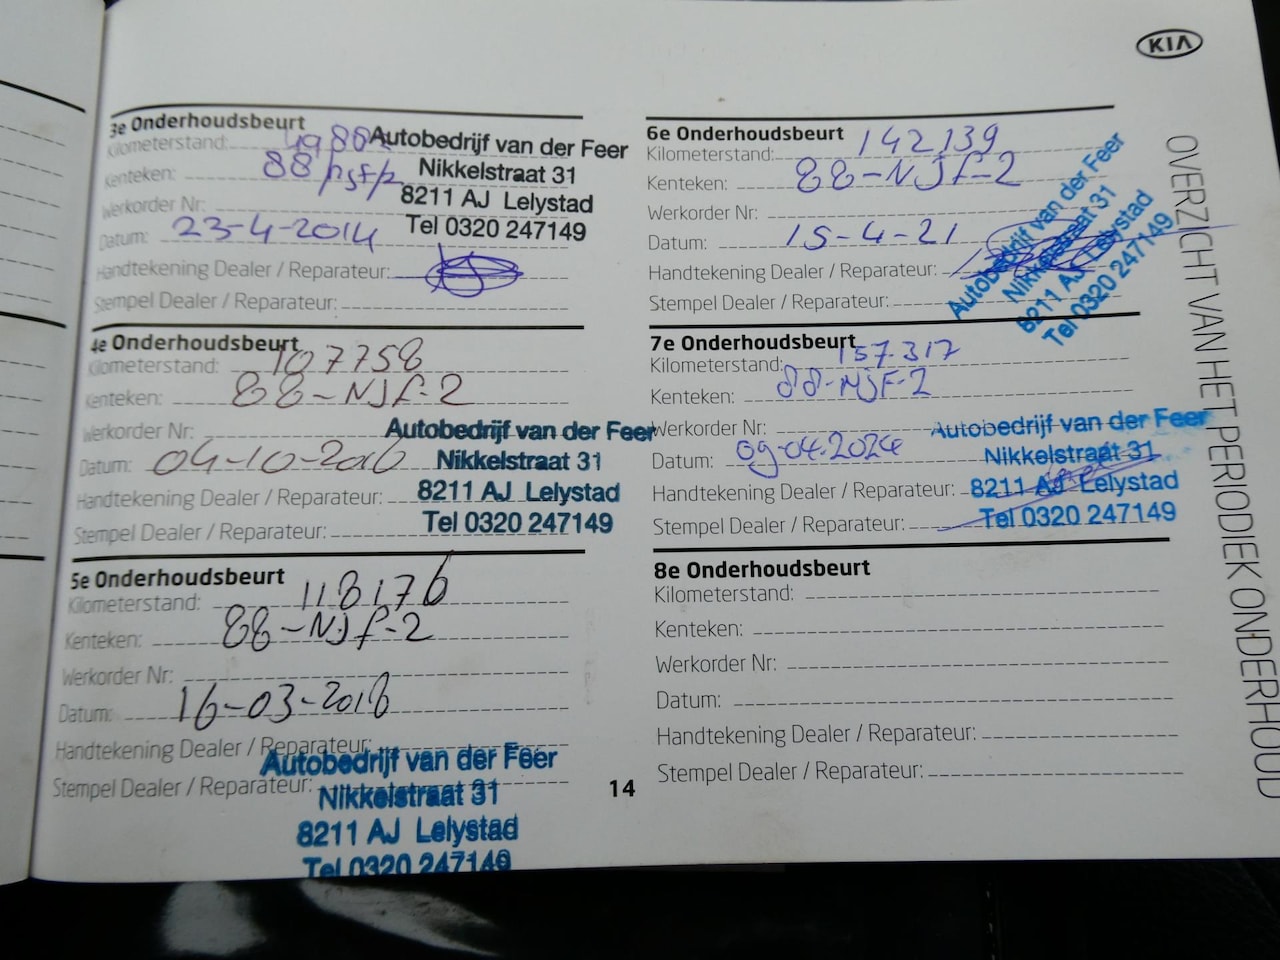 KIA
3e Onderhoudsbeurt
Kilometerstand:
Kenteken: 88
Werkorder Nr:
Datum: 23-4-2014
Handtekening Dealer / Reparateur:
Stempel Dealer / Reparateur:
Autobedrijf van der Feer
Nikkelstraat 31
8211 AJ Lelystad
Tel 0320 247149
4e Onderhoudsbeurt
Kilometerstand: 107758
Kenteken: 88-NJF-2
Werkorder Nr:
Datum: 04-10-2016
Handtekening Dealer / Reparateur:
Stempel Dealer / Reparateur:
Autobedrijf van der Feer
Nikkelstraat 31
8211 AJ Lelystad
Tel 0320 247149
5e Onderhoudsbeurt
Kilometerstand: 118176
Kenteken: 88-NJF-2
Werkorder Nr:
Datum: 16-03-2018
Handtekening Dealer / Reparateur:
Stempel Dealer / Reparateur:
Autobedrijf van der Feer
Nikkelstraat 31
8211 AJ Lelystad
Tel 0320 247149
6e Onderhoudsbeurt
Kilometerstand: 142139
Kenteken: 88-NJF-2
Werkorder Nr:
Datum: 15-4-21
Handtekening Dealer / Reparateur:
Stempel Dealer / Reparateur:
Autobedrijf van der Feer
Nikkelstraat 31
8211 AJ Lelystad
Tel 0320 247149
7e Onderhoudsbeurt
Kilometerstand: 157.317
Kenteken: 88-NJF-2
Werkorder Nr:
Datum: 09-04-2024
Handtekening Dealer / Reparateur:
Stempel Dealer / Reparateur:
Autobedrijf van der Feer
Nikkelstraat 31
8211 AJ Lelystad
Tel 0320 247149
8e Onderhoudsbeurt
Kilometerstand:
Kenteken:
Werkorder Nr:
Datum:
Handtekening Dealer / Reparateur:
Stempel Dealer / Reparateur:
14
OVERZICHT VAN HET PERIODIEK ONDERHOUD